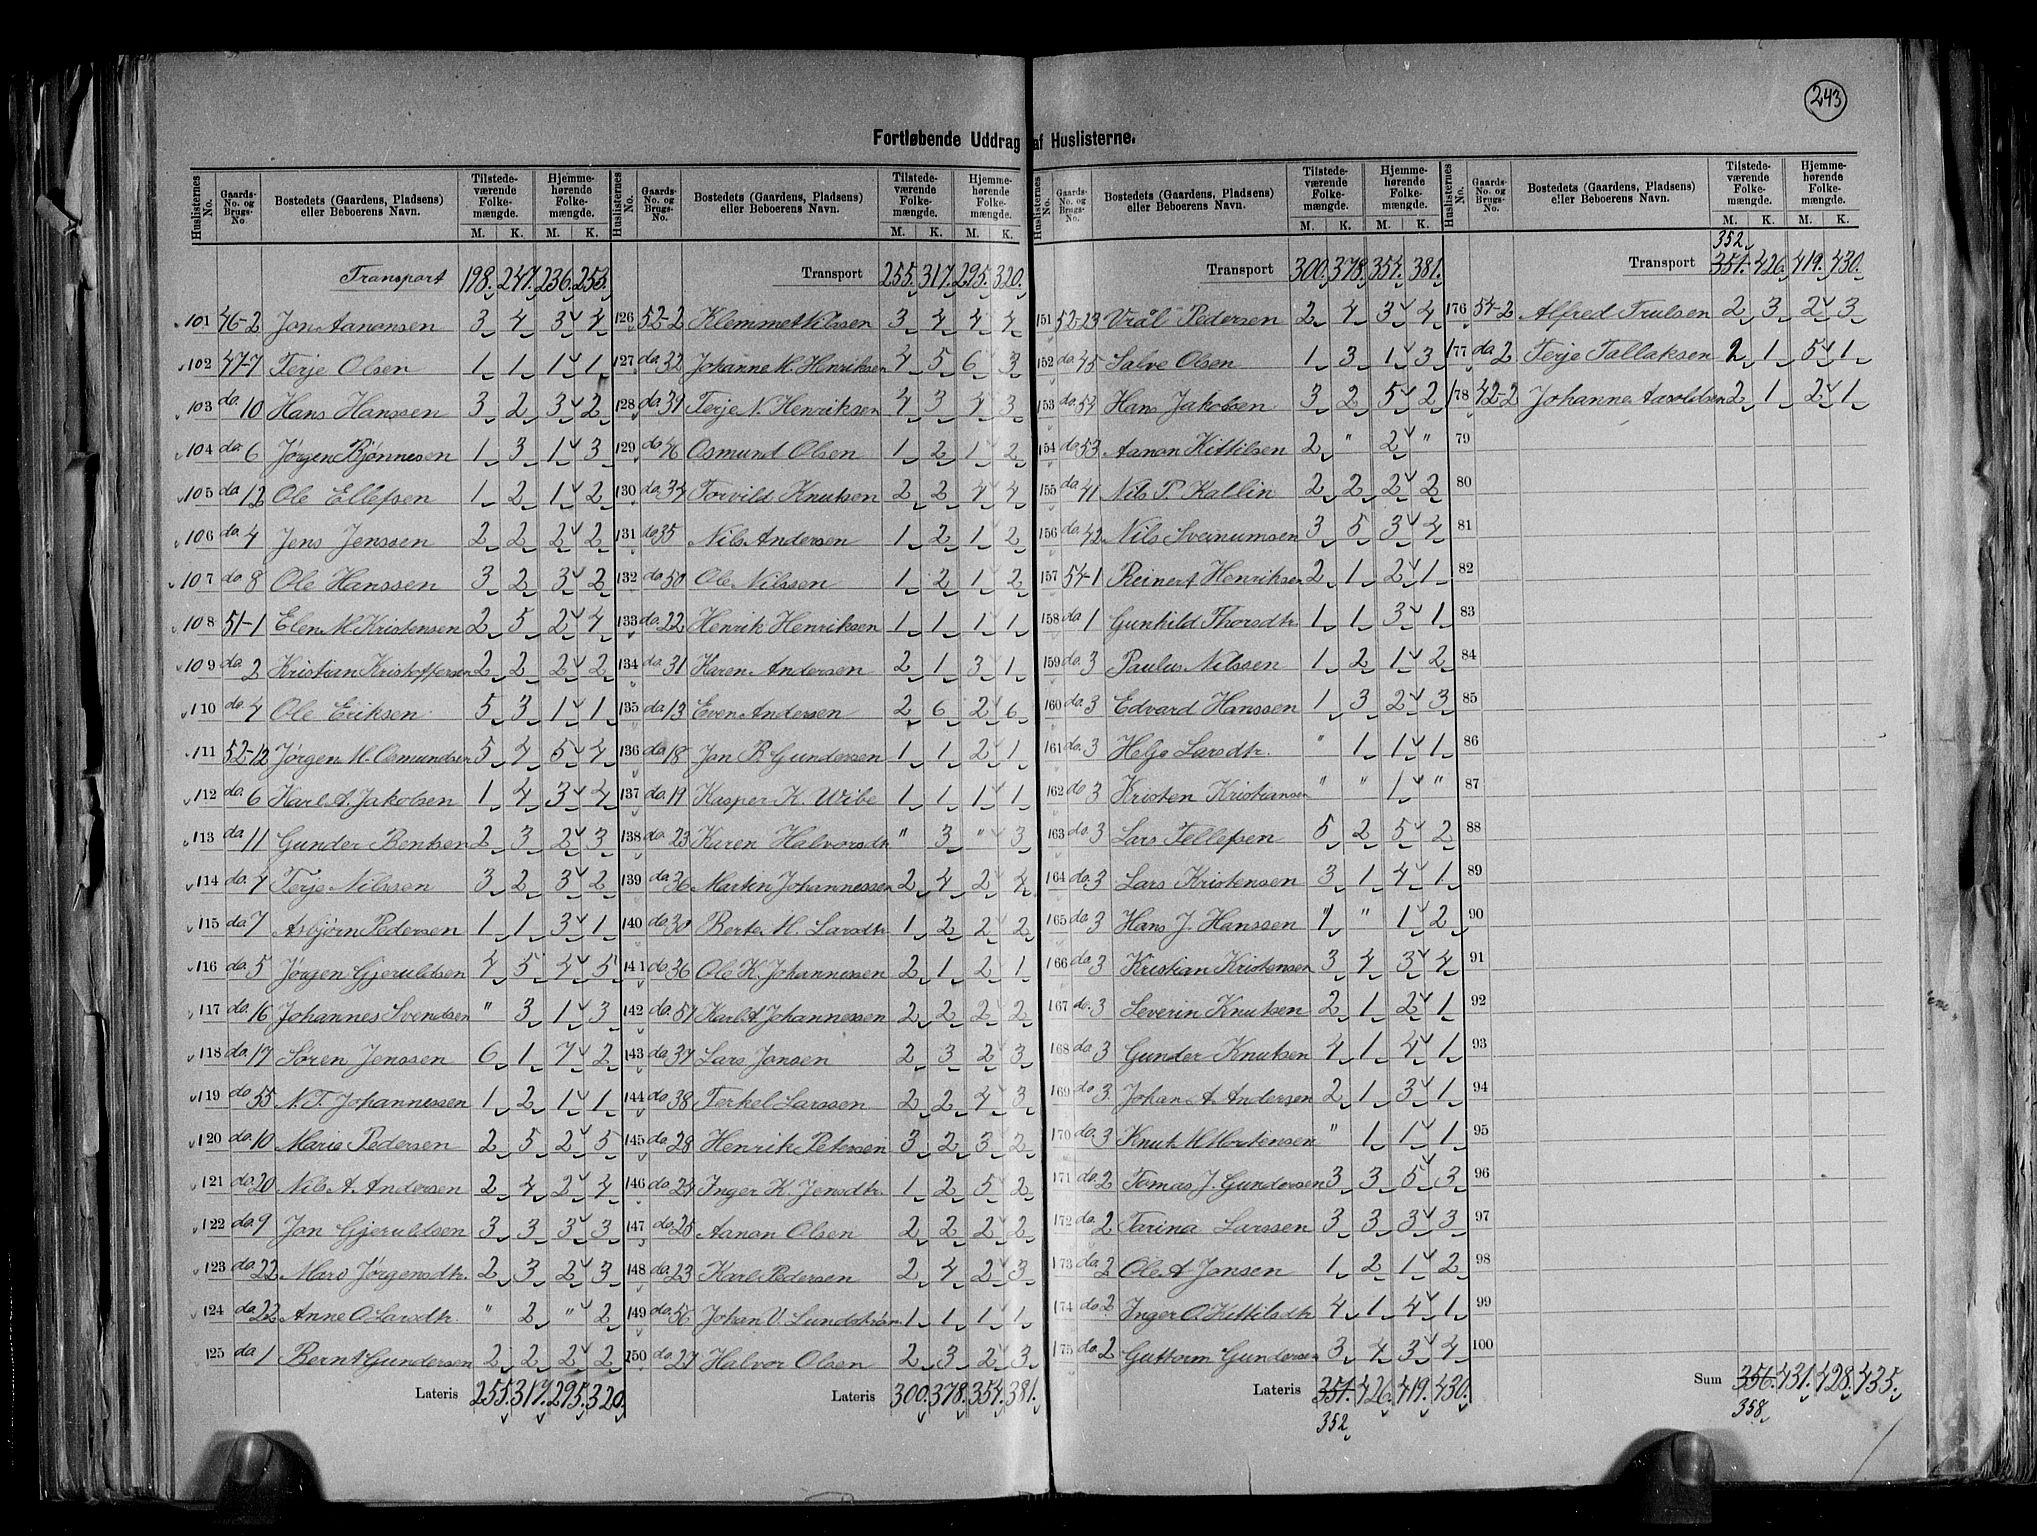 243
Fortløbende Uddrag af Huslisterne.
Huslisternes No. Gaards-No. og Brugs-No Bostedets (Gaardens, Pladsens) eller Beboerens Navn. Tilstedeværende Folkemængde. M. K. Hjemmehørende Folkemængde. M. K.
Transport 198. 247. 236. 253.
101 46-2 Jon Aanonsen 3 4 3 4
102 47-7 Terje Olsen 1 1 1 1
103 do 10 Hans Hanssen 3 2 3 2
104 do 6 Jørgen Bjønnesen 1 3 1 3
105 do 12 Ole Ellefsen 1 2 1 2
106 do 4 Jens Jenssen 2 2 2 2
107 do 8 Ole Hanssen 3 2 3 2
108 51-1 Elen M Kristensen 2 5 2 4
109 do. 2 Kristian Kristoffersen 2 2 2 2
110 do. 4 Ole Eriksen 5 3 1 1
111 52-12 Jørgen M. Osmundsen 5 4 5 4
112 do. 6 Karl A. Jakobsen 1 4 3 4
113 do 11 Gunder Bentsen 2 3 2 3
114 do. 4 Terje Nilssen 3 2 3 2
115 do 7 Asbjørn Pedersen 1 1 3 1
116 do. 5 Jørgen Gjeruldsen 4 5 4 5
117 do. 16 Johannes Svendsen " 3 1 3
118 do. 17 Søren Jenssen 6 1 7 2
119 do 55 N. T. Johannessen 1 2 1 1
120 do. 10 Marie Pedersen 2 5 2 5
121 do 20 Nils A. Andersen 2 4 2 4
122 do. 9 Jon Gjeruldsen 3 3 3 3
123 do. 22 Mari Jørgensdtr. 2 3 2 3
124 do. 22 Anne O Larsdtr. " 2 " 2
125 do 1 Bernt Gundersen 2 2 2 2
Lateris 255. 317. 295. 320.
Huslisternes No. Gaards-No. og Brugs-No. Bostedets (Gaardens, Pladsens) eller Beboerens Navn. Tilstedeværende Folkemængde. M. K. Hjemmehørende Folkemængde. M. K.
Transport 255. 317. 295. 320.
126 52-2 Klemmet Nilssen 3 4 4 4
127 do. 32 Johanne M. Henriksen 4 5 6 3
128 do. 31 Terje N. Henriksen 4 3 4 3
129 do 46 Osmund Olsen 1 2 1 2
130 do. 34 Torvild Knutsen 2 2 4 4
131 do 35 Nils Andersen 1 2 1 2
132 do. 50 Ole Nilssen 1 2 1 2
133 do. 22 Henrik Henriksen 1 1 1 1
134 do. 31 Karen Andersen 2 1 3 1
135 do 13 Even Andersen 2 6 2 6
136 do 18 Jon B Gundersen 1 1 2 1
137 do. 19 Kasper K. Wibe 1 1 1 1
138 do. 23 Karen Halvorsdtr " 3 " 3
139 do 36 Martin Johannessen 2 4 2 4
140 do. 30 Berte M. Larsdtr 1 2 2 2
141 do. 36 Ole K. Johannessen 2 1 2 1
142 do. 57 Karl A Johannessen 2 2 2 2
143 do. 37 Lars Jonsen 2 3 2 3
144 do. 38 Terkel Larssen 2 2 4 3
145 do. 28 Henrik Petersen 3 2 3 2
146 do 24 Inger K. Jensdtr. 1 2 5 2
147 do. 25 Aanon Olsen 2 2 2 2
148 do. 23 Karl Pedersen 2 4 2 3
149 do. 56 Johan V. Lundstrøm 1 1 1 1
150 do. 27 Halvor Olsen 2 3 2 3
Lateris 300. 378. 354. 381.
Huslisternes No. Gaards-No. og Brugs-No. Bostedets (Gaardens, Pladsens) eller Beboerens Navn. Tilstedeværende Folkemængde. M. K. Hjemmehørende Folkemængde. M. K.
Transport 300. 378. 354. 381.
151 52-23 Vrål Pedersen 2 4 3 4
152 do. 45 Salve Olsen 1 3 1 3
153 do. 54 Hans Jakobsen 3 2 5 2
154 do. 53 Aanon Kittilsen 2 " 2 "
155 do. 41 Nils P. Kallin 2 2 2 2
156 do. 42 Nils Sveinumsen 3 5 3 4
157 54-1 Reinert Henriksen 2 1 2 1
158 do 1 Gunhild Thorsdtr 1 1 3 1
159 do. 3 Paulus Nilssen 1 2 1 2
160 do. 3 Edvard Hanssen 1 3 2 3
161 do. 3 Helje Larsdtr. " 1 1 1
162 do 3 Kristen Kristiansen " " 1 "
163 do. 3 Lars Tellefsen 5 2 5 2
164 do. 3 Lars Kristensen 3 1 4 1
165 do. 3 Hans J. Hanssen 1 " 1 2
166 do. 3 Kristian Kristensen 3 4 3 4
167 do. 3 Severin Knutsen 2 1 2 1
168 do. 3 Gunder Knutsen 4 1 4 1
169 do. 3 Johan A. Andersen 2 1 3 1
170 do. 3 Knut M Mortensen " 1 1 1
171 do. 2 Tomas J. Gundersen 3 3 5 3
172 do. 2 Tarina Larssen 3 3 3 3
173 do. 2 Ole A Jonsen 1 2 1 2
174 do. 2 Inger O. Kittilsdtr 4 1 4 1
175 do. 2 Guttorm Gundersen 3 4 3 4
Lateris 351. 426. 419. 430.
352
Huslisternes No. Gaards-No. og Brugs-No. Bostedets (Gaardens, Pladsens) eller Beboerens Navn. Tilstedeværende Folkemængde. M. K. Hjemmehørende Folkemængde. M. K.
352
Transport 351. 426. 419. 430.
176 54-2 Alfred Trulsen 2 3 2 3
177 do 2 Terje Tallaksen 2 1 5 1
178 42-2 Johanne Aaroldsen 2 1 2 1
79
80
81
82
83
84
85
86
87
88
89
90
91
92
93
94
95
96
97
98
99
100
Sum 356. 431. 428. 435.
358